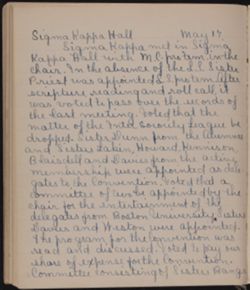 Sigma Kappa Hall May 17.
Sigma Kappa met in Sigma
Kappa Hall with M.C. pro tem. in the
chair. In the absence of the S.C. Sister
Priest was appointed S.C. pro tem. After
scripture reading and roll call, it
was voted to pass over the records of
the last meeting. Voted that the
matter of the Intersorority League be
dropped. Sisters Dunn from the alumnae
and Sisters Lakin, Howard, Kennison
Blaisdell and Davies from the active
membership were appointed as dele
gates to the convention. Voted that a
committee of two be appointed by the
chair for the entertainment of the
delegates from Boston University. Sisters
Davies and Weston were appointed.
The program for the convention was
read and discussed. Voted to pay our
share of expense for the convention.
Committee consisting of Sisters Bangs